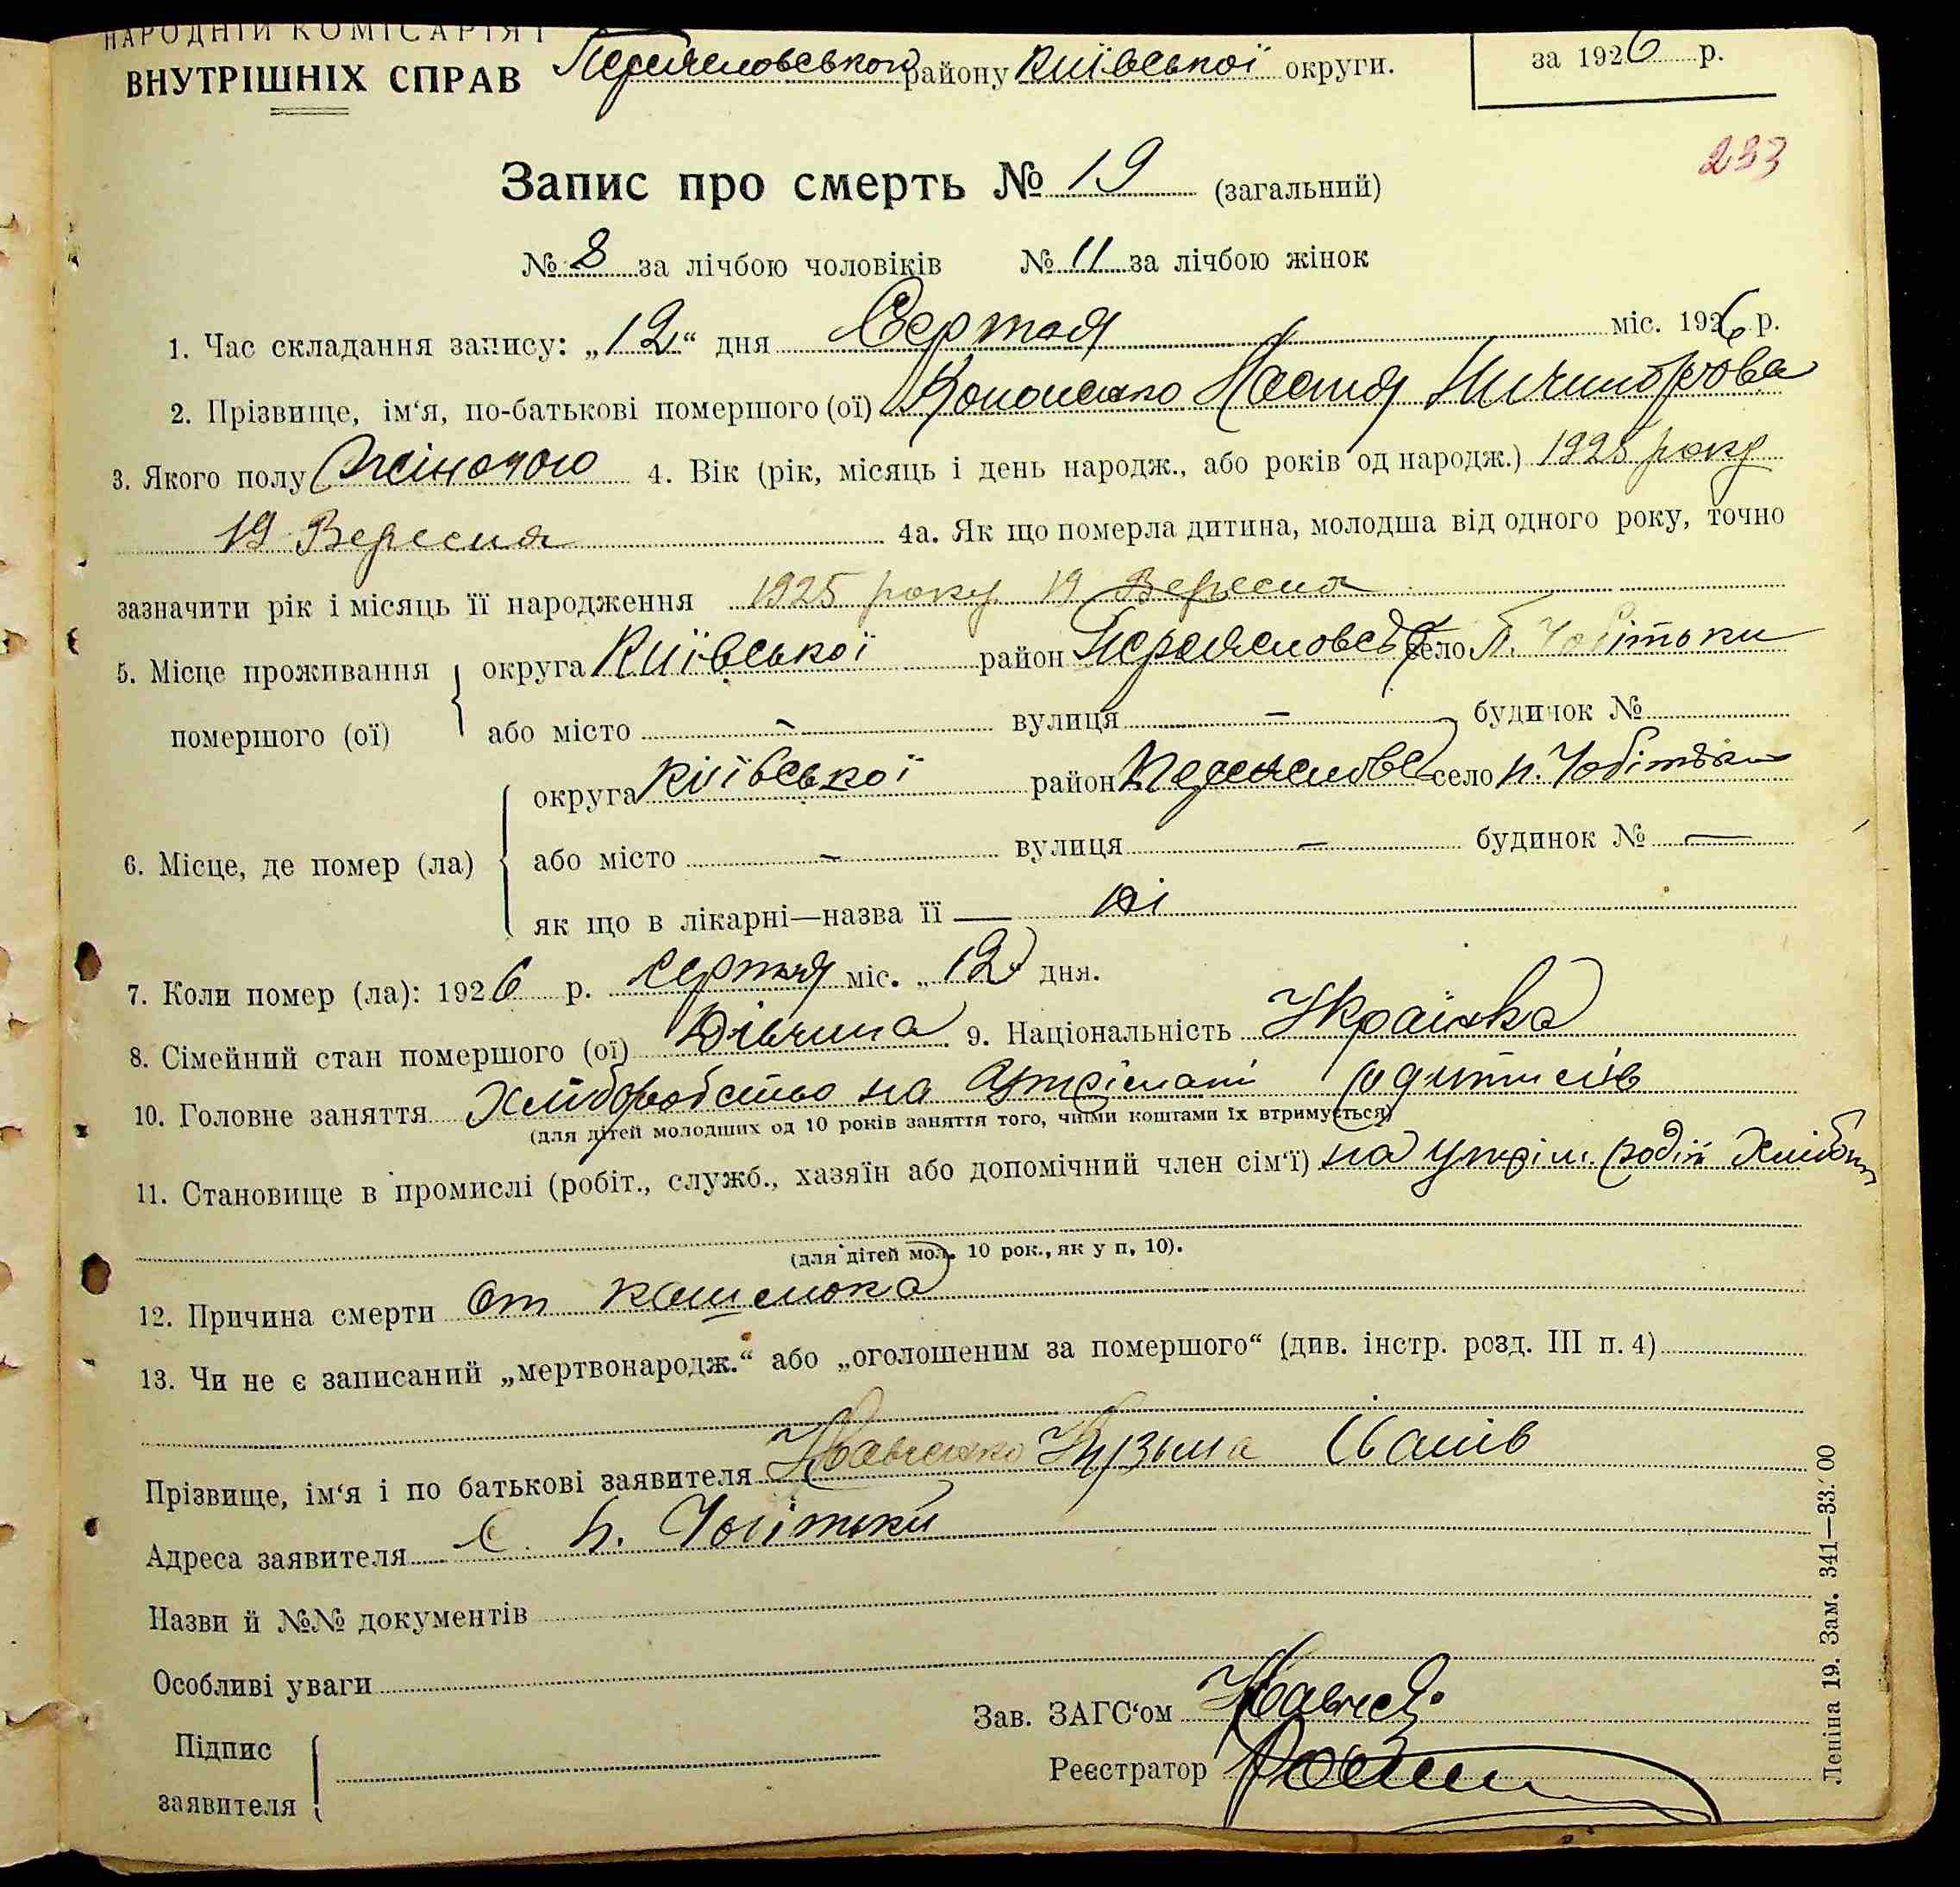 НАРОДНІЙ КОМІСАРІЯТ
ВНУТРІШНІХ СПРАВ
району Київської округи.
за 1926 р.
233
Запис про смерть № 19 (загальний)
№ 8 за лічбою чоловіків № 11 за лічбою жінок
1. Час складання запису: „12“ дня Серпня міс. 1926 р.
2. Прізвище, ім‘я, по-батькові помершого (ої) Кононенко Настя Ничипорова
3. Якого полу Жіночого 4. Вік (рік, місяць і день народж., або років од народж.) 1925 року
19 Вересня 4а. Як що померла дитина, молодша від одного року, точно
зазначити рік і місяць її народження 1925 року 19 Вересня
5. Місце проживання помершого (ої) округа Київської район село П. Чобітьки
або місто - вулиця - будинок №
6. Місце, де помер (ла) округа Київської район село п. Чобітьки
або місто - вулиця - будинок № —
як що в лікарні—назва її — ні
7. Коли помер (ла): 1926 р. серпня міс. „12“ дня.
8. Сімейний стан помершого (ої) Дівчина 9. Національність Українка
10. Головне заняття Хліборобство на
(для дітей молодших од 10 років заняття того, чиїми коштами їх втримується)
11. Становище в промислі (робіт., служб., хазяїн або допомічний член сім‘ї) на
(для дітей мол. 10 рок., як у п. 10).
12. Причина смерти От кашлюка
13. Чи не є записаний „мертвонародж.“ або „оголошеним за помершого“ (див. інстр. розд. III п. 4)
Прізвище, ім‘я і по батькові заявителя Кузьма Іванів
Адреса заявителя С. П. Чобітьки
Назви й №№ документів
Особливі уваги
Зав. ЗАГС‘ом
Підпис
заявителя
Реєстратор
Леніна 19. Зам. 341—33.'00